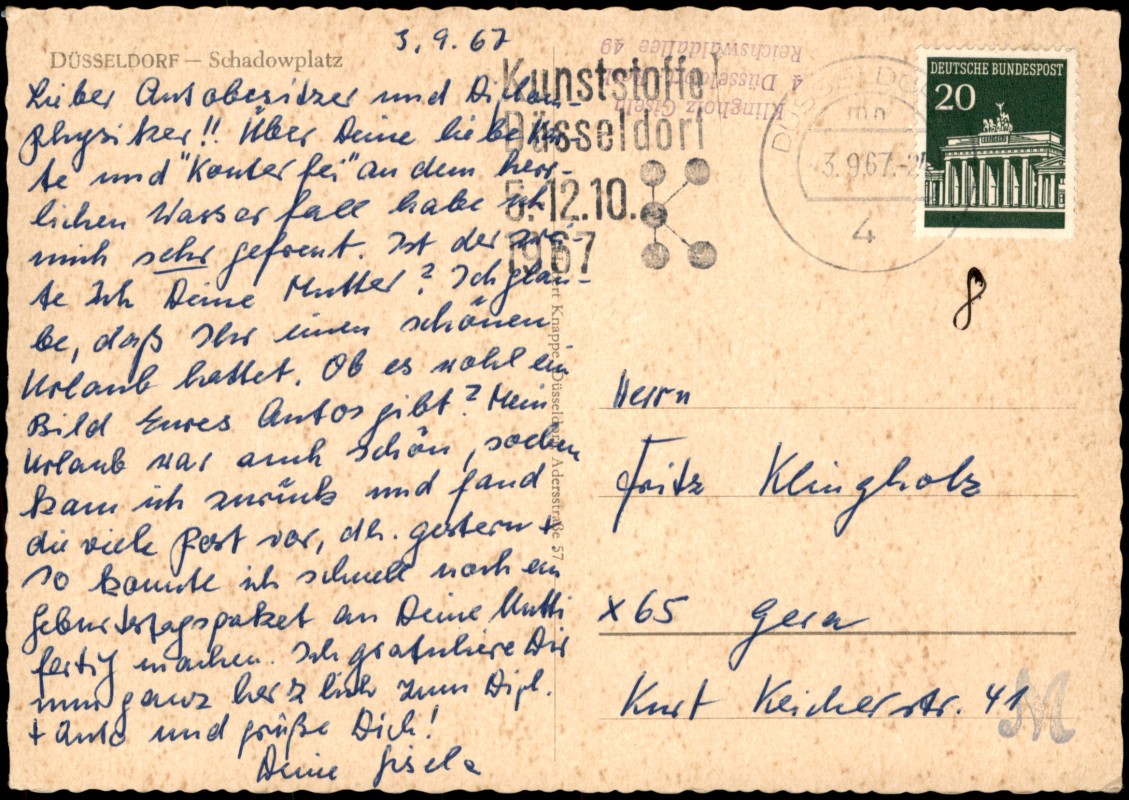 3.9.67
DÜSSELDORF — Schadowplatz
Lieber Autobesitzer und Diplom
physiker!! Über Deine liebe Kar-
te und "Konterfei" an dem herr-
lichen Wasserfall habe ich
mich sehr gefreut. Ist der zwei-
te Ich Deine Mutter? Ich glau-
be, daß Ihr einen schönen
Urlaub hattet. Ob es wohl ein
Bild Eures Autos gibt? Mein
Urlaub war auch schön, soeben
kam ich zurück und fand
die viele Post vor, dh. gestern +
so konnte ich schnell noch ein
Geburtstagspaket an Deine Mutti
fertig machen. Ich gratuliere Dir
nun ganz herzlich zum Dipl.
+ Auto und grüße Dich!
Deine Gisela
Klingholz Gisela
4 Düsseldorf
Reichswaldallee 49
Kunststoffe
Düsseldorf
5.-12.10.
1967
3.9.67.-2
mn
4
DEUTSCHE BUNDESPOST
20
8
Knappe, Düsseldorf, Adersstraße 57
Herrn
Fritz Klingholz
x 65 Gera
Kurt Keicherstr. 41
M